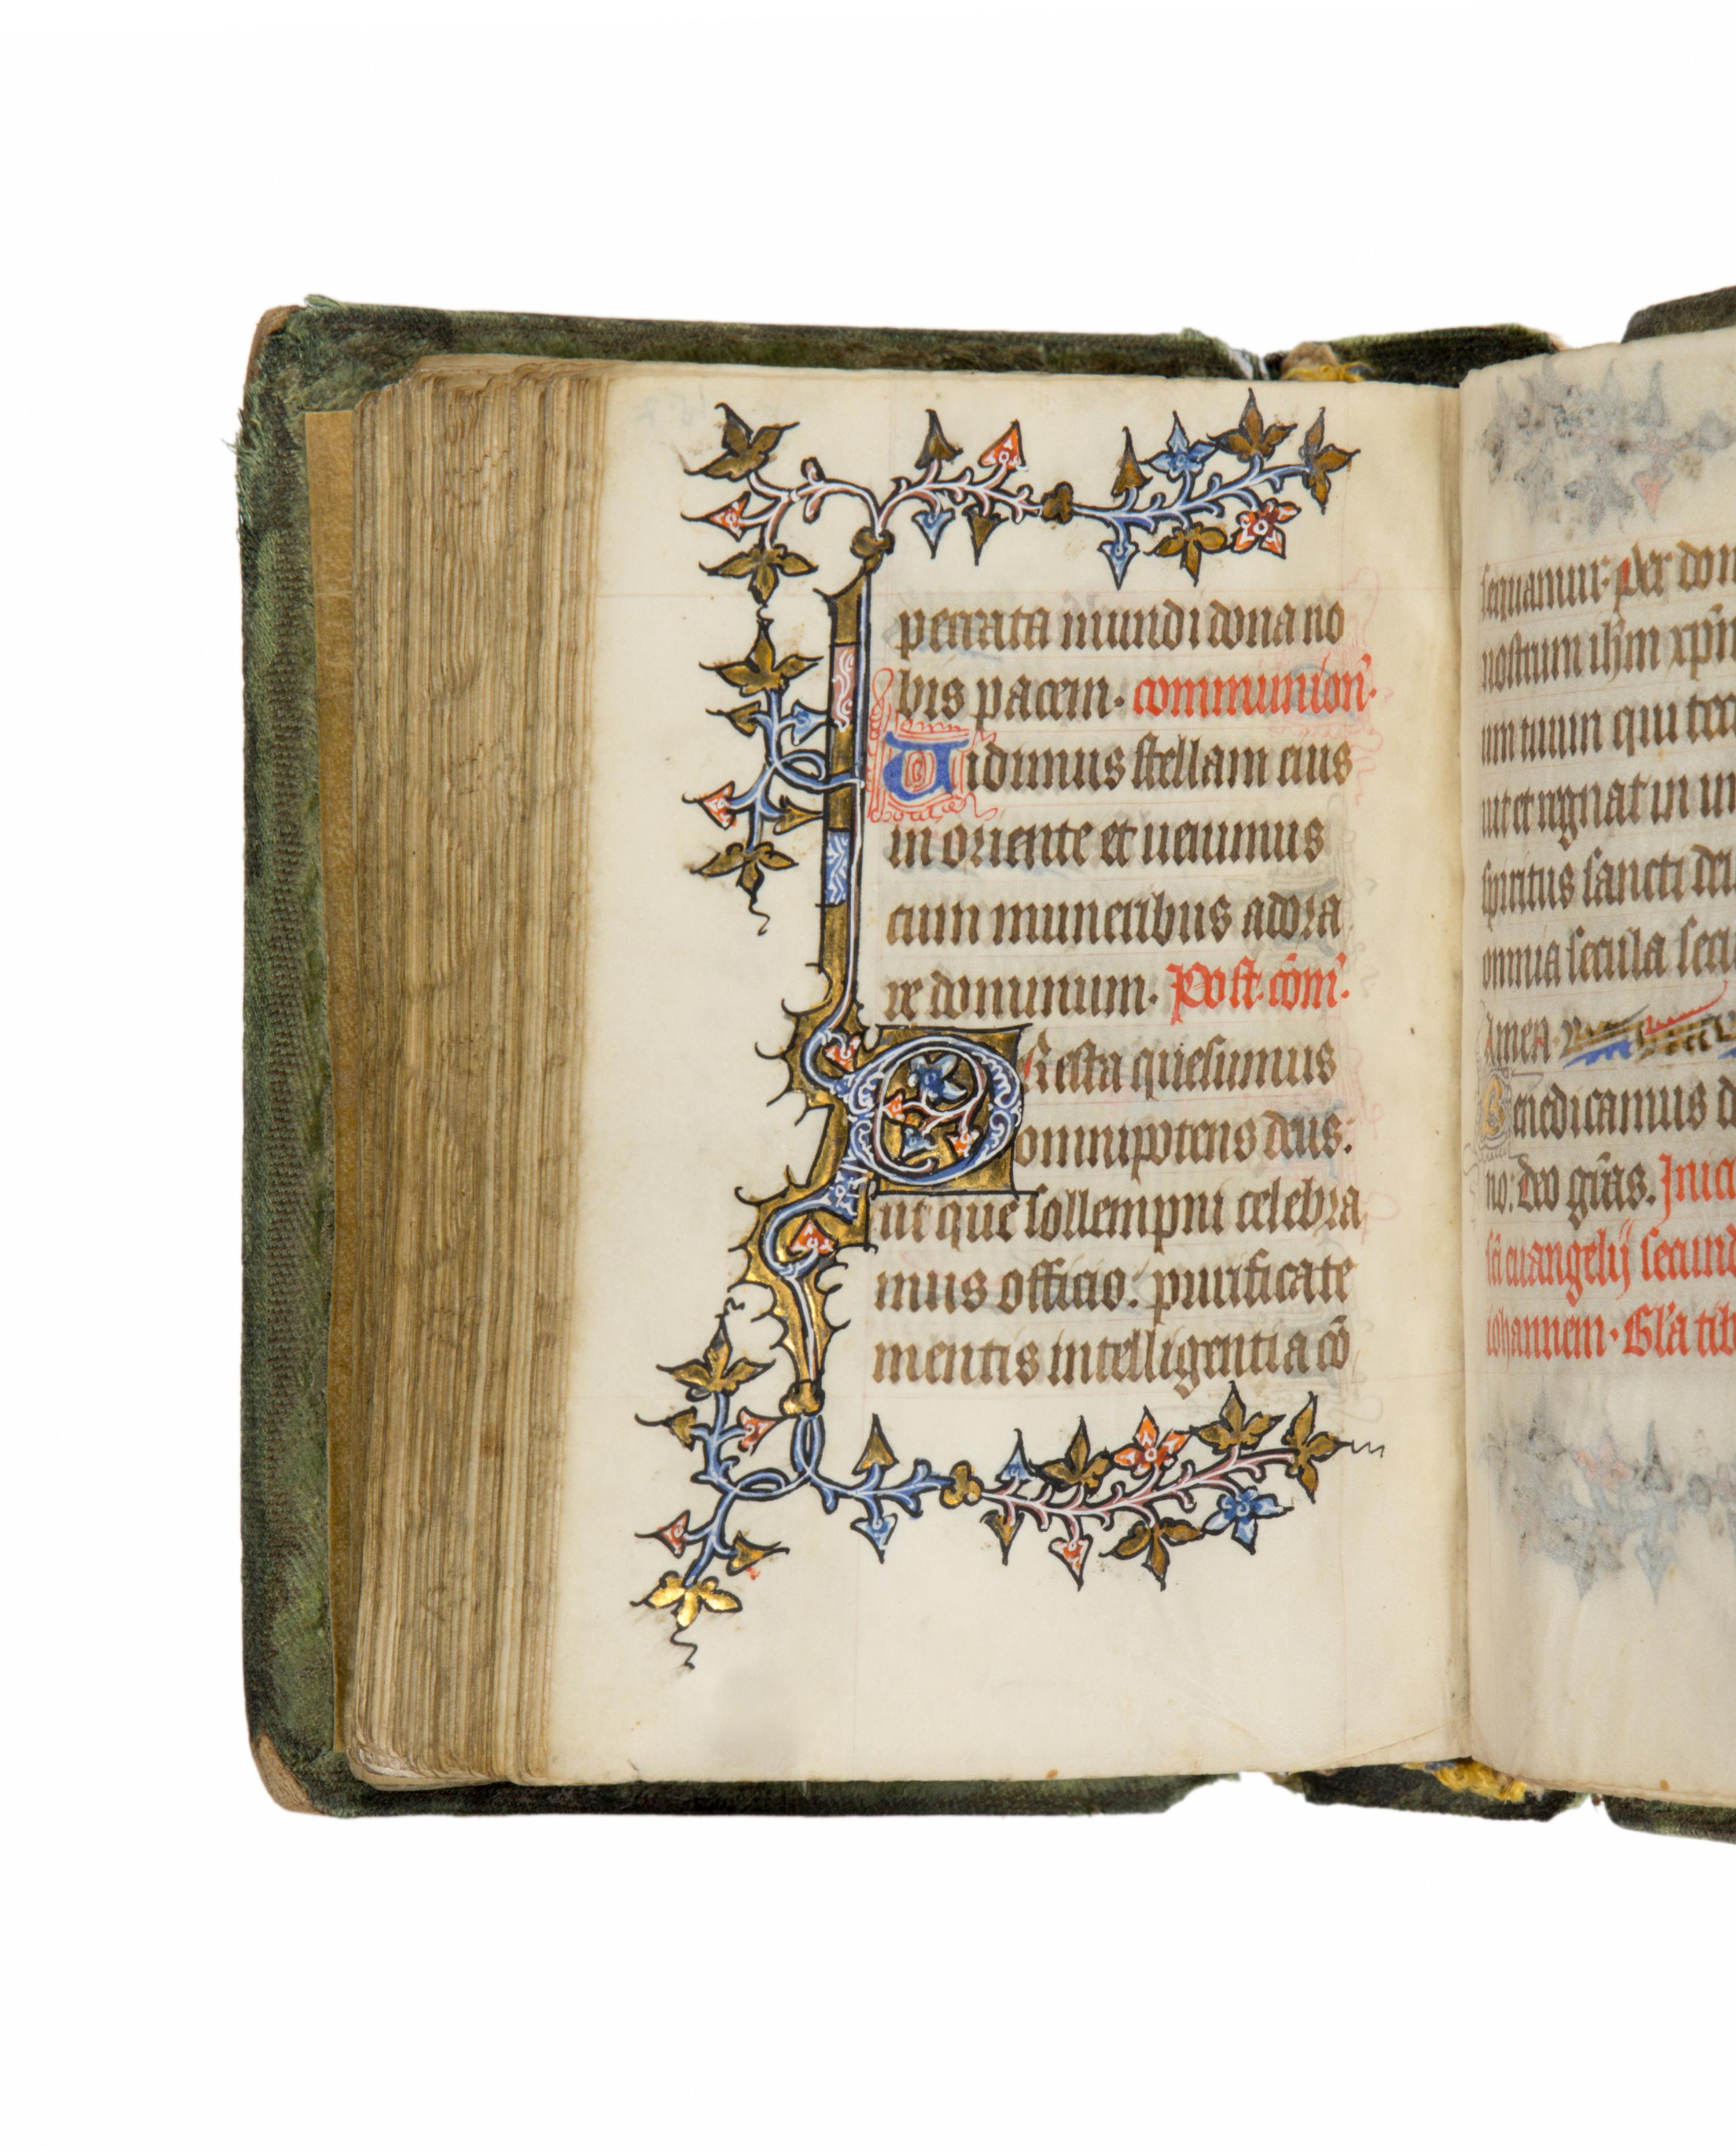 peccata mundi dona no
bis pacem. communion̄.
Uidimus stellam eius
in oriente et uenimus
cum muneribus adora
re dominum. Post. cōm̄.
PResta quesumus
omnipotens deus:
ut que sollempni celebra
mus officio: purificate
mentis intelligentia cō
sequamur. per dom
nostrum ihm xp̄m
um tuum qui tec
uit et regnat in un
spiritus sancti deu
omnia secula secu
Amen.
Benedicamus d
no. Deo gr̄as. Inici
sc̄i euangelij secund
iohannem. Gl'a tib